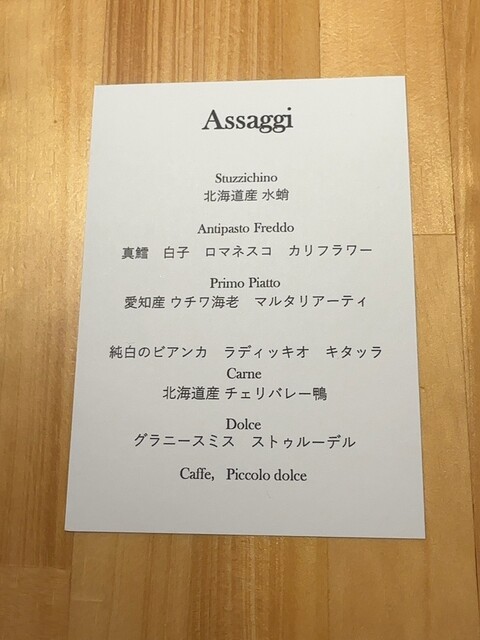 Assaggi
Stuzzichino
北海道産 水蛸
Antipasto Freddo
真鱈　白子　ロマネスコ　カリフラワー
Primo Piatto
愛知産 ウチワ海老　マルタリアーティ
純白のビアンカ　ラディッキオ　キタッラ
Carne
北海道産 チェリバレー鴨
Dolce
グラニースミス　ストゥルーデル
Caffe,　Piccolo dolce